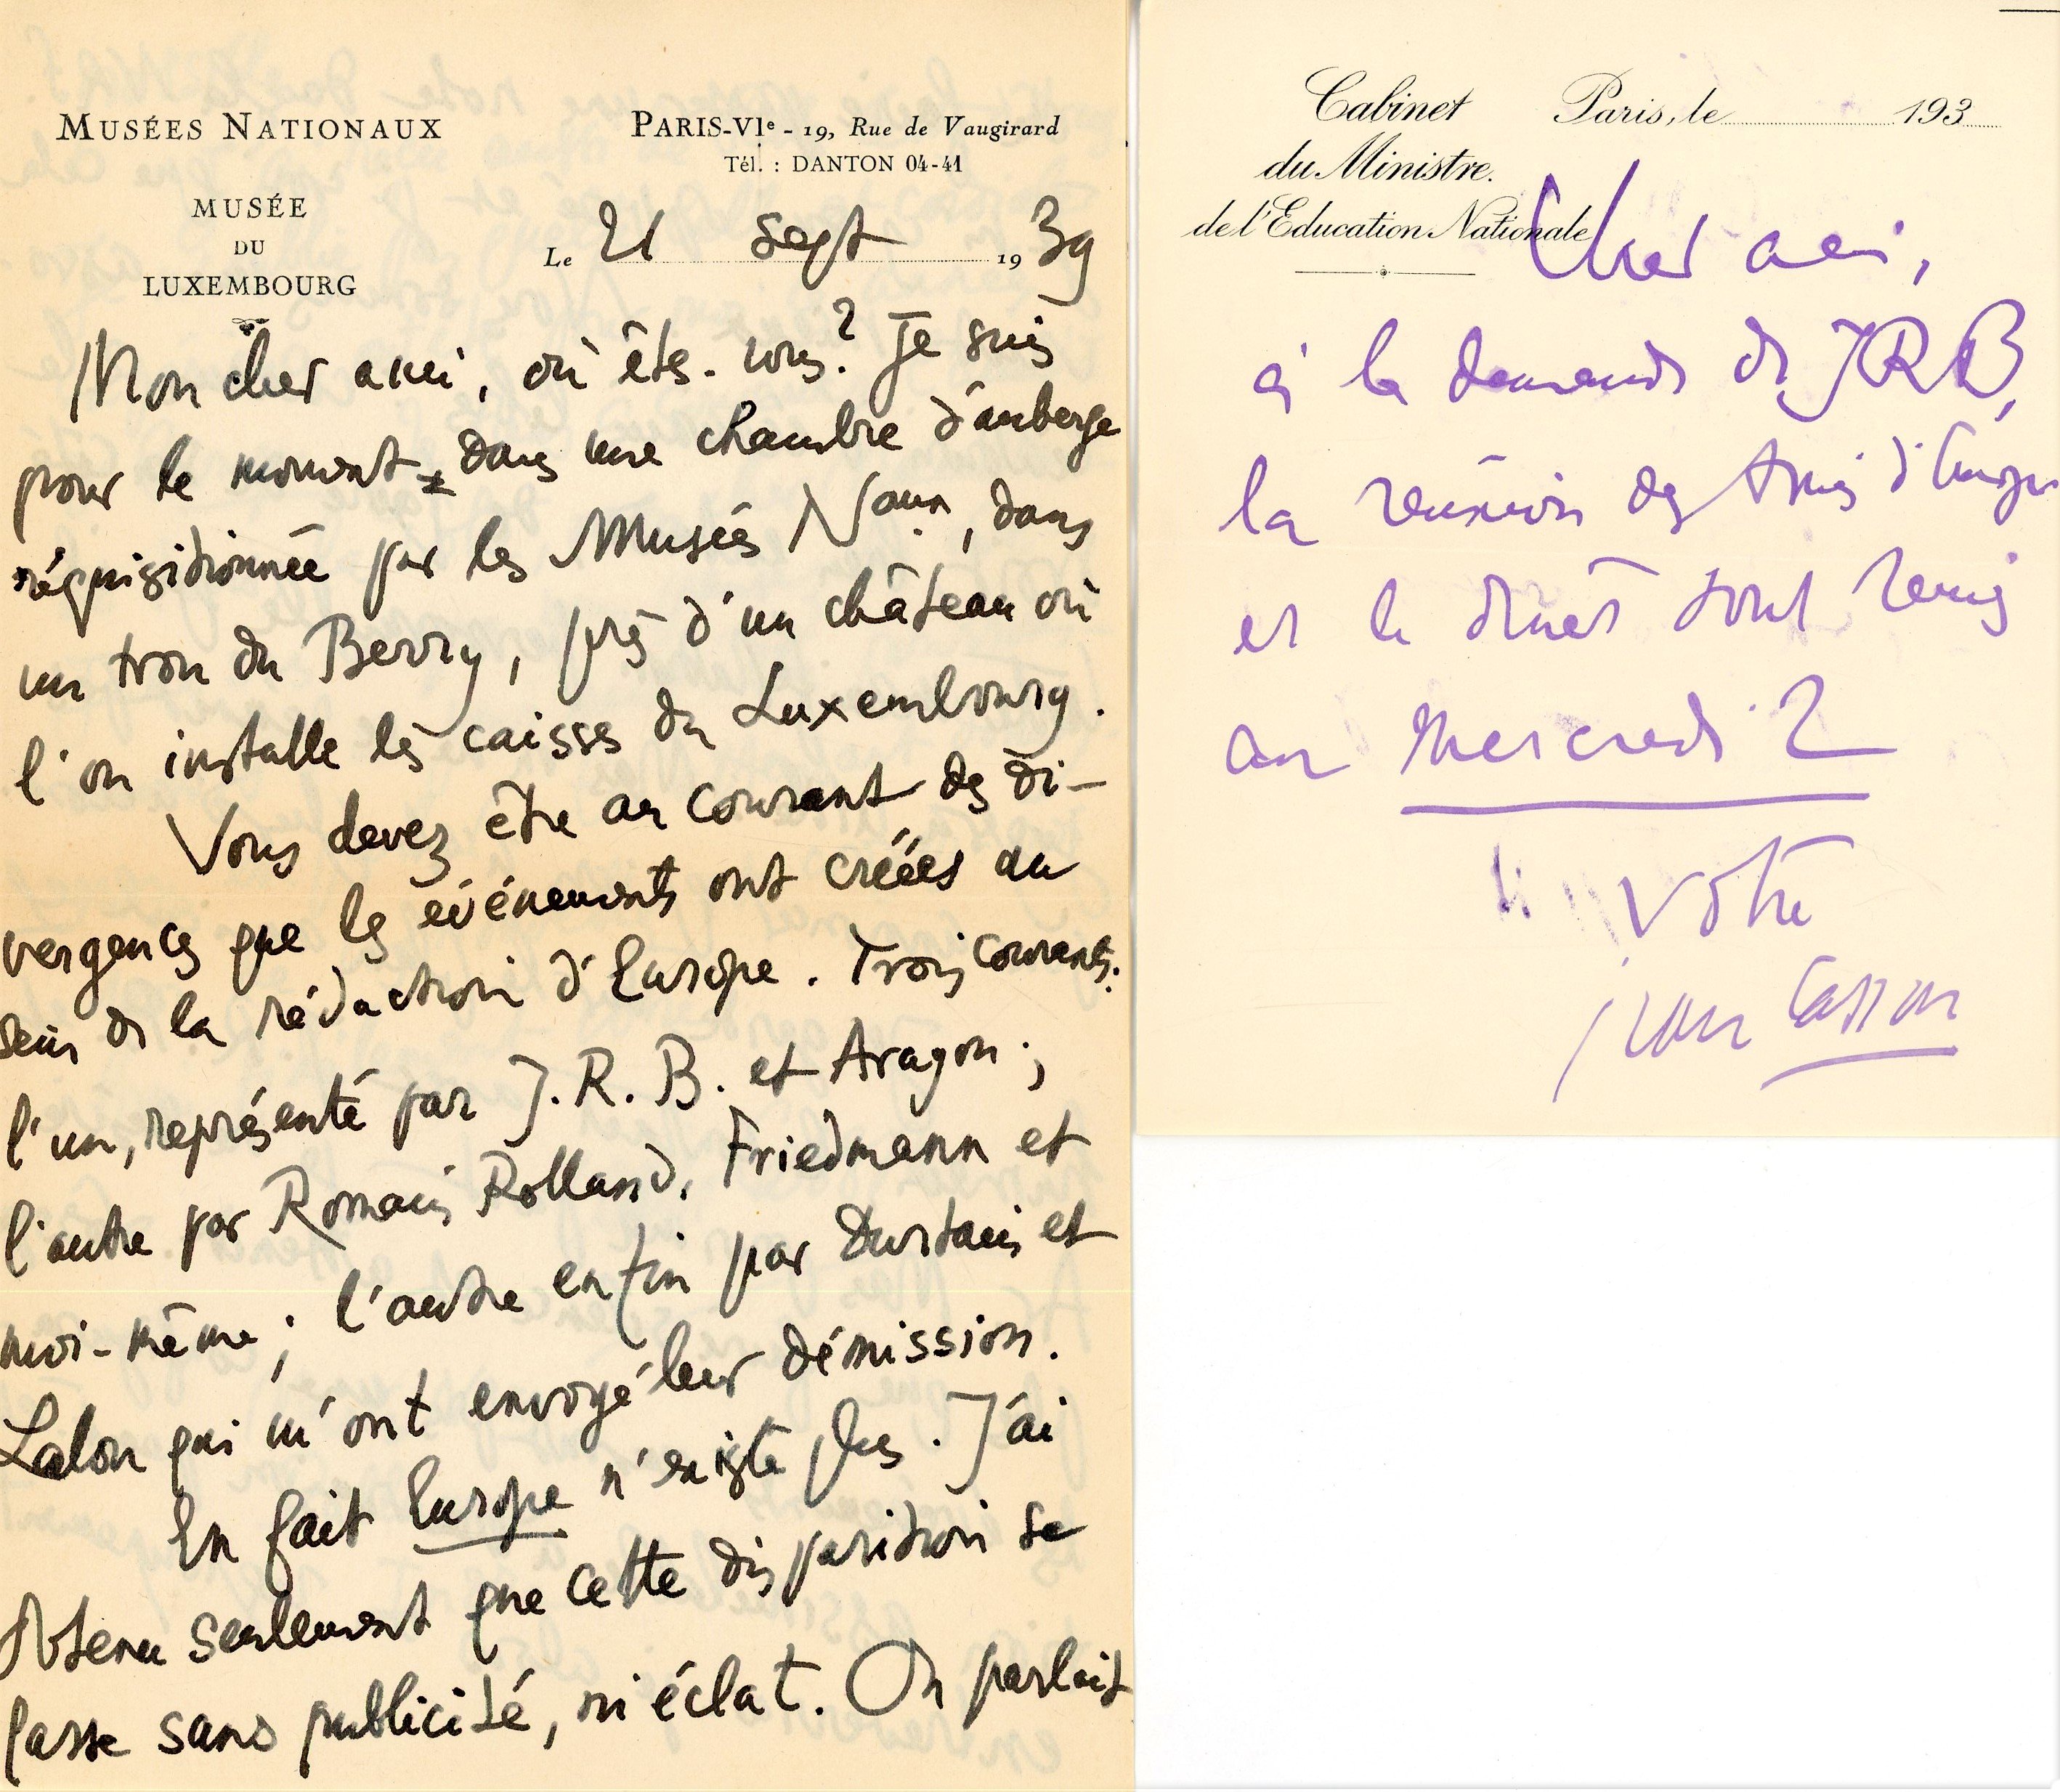 MUSÉES NATIONAUX
MUSÉE
DU
LUXEMBOURG
PARIS-VIe - 19, Rue de Vaugirard
Tél. : DANTON 04-41
Le 21 sept 1939
Mon cher ami, où êtes-vous? Je suis
pour le moment dans une chambre d'auberge
réquisitionnée par les Musées Naux, dans
un trou du Berry, près d'un château où
l'on installe les caisses du Luxembourg.
Vous devez être au courant des di-
vergences que les événements ont créées au
sein de la rédaction d'Europe. Trois courants.
l'un, représenté par J.R.B. et Aragon ;
l'autre par Romain Rolland, Friedmann et
moi-même ; l'autre enfin par Durtain et
Lalou qui m'ont envoyé leur démission.
En fait Europe n'existe plus. J'ai
obtenu seulement que cette disparition se
passe sans publicité, ni éclat. On parlait
Cabinet
du Ministre.
de l'Education Nationale
Paris, le 193
Cher ami,
à la demande de JRB,
la réunion des Amis d'Europe
et le dîner sont remis
au Mercredi 2
Votre
Jean Cassou